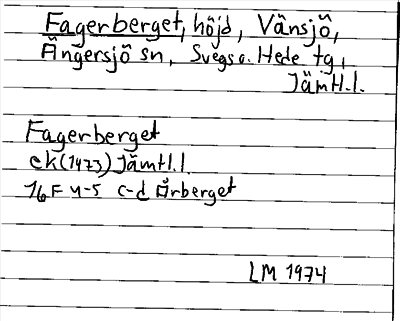 Fagerberget, höjd, Vänsjö,
Ängersjö sn, Svegs o. Hede tg,
Jämtl.l.
Fagerberget
ek (1973) Jämtl.l.
16F 4-5 c-d Örberget
LM 1974